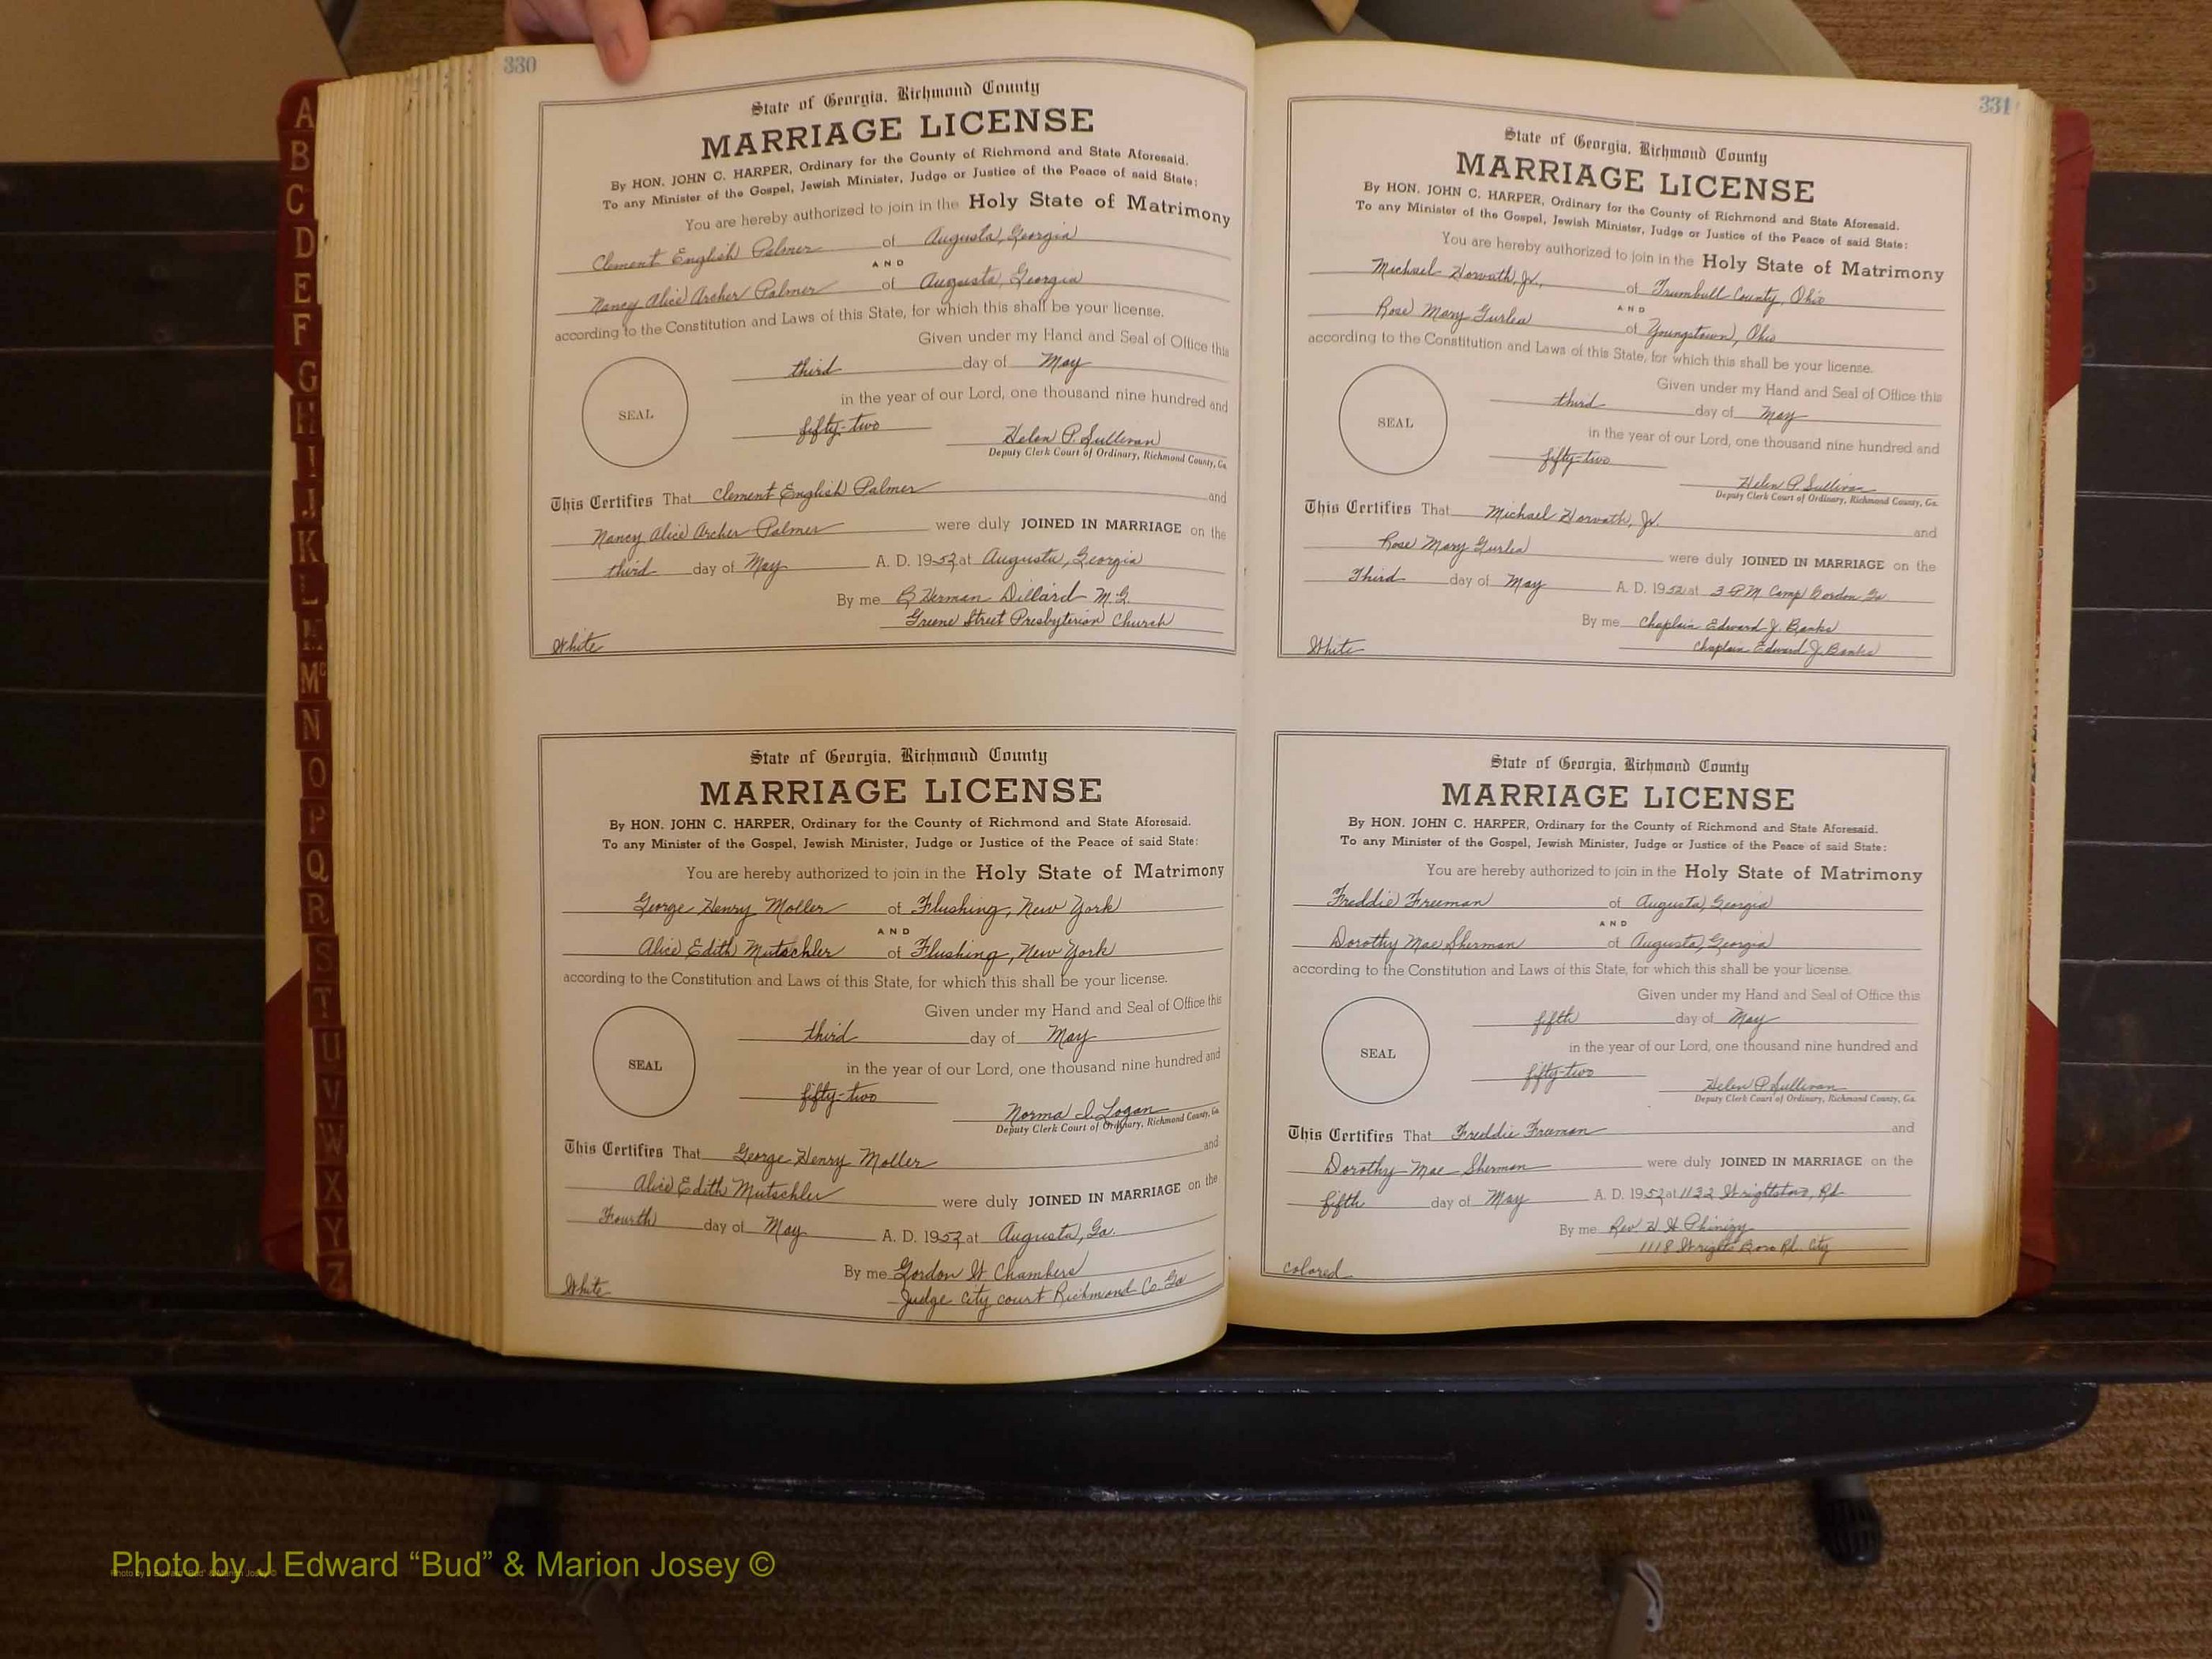 330
State of Georgia, Richmond County
MARRIAGE LICENSE
By HON. JOHN C. HARPER, Ordinary for the County of Richmond and State Aforesaid.
To any Minister of the Gospel, Jewish Minister, Judge or Justice of the Peace of said State:
You are hereby authorized to join in the Holy State of Matrimony
Clement English Palmer of Augusta, Georgia
AND
Nancy Alice Archer Palmer of Augusta, Georgia
according to the Constitution and Laws of this State, for which this shall be your license.
Given under my Hand and Seal of Office this
third day of May
in the year of our Lord, one thousand nine hundred and
SEAL
fifty-two
Helen P. Sullivan
Deputy Clerk Court of Ordinary, Richmond County, Ga.
This Certifies That Clement English Palmer and
Nancy Alice Archer Palmer were duly JOINED IN MARRIAGE on the
third day of May A. D. 1952 at Augusta, Georgia
By me B Herman Dillard M.G.
Greene Street Presbyterian Church
White
State of Georgia, Richmond County
MARRIAGE LICENSE
By HON. JOHN C. HARPER, Ordinary for the County of Richmond and State Aforesaid.
To any Minister of the Gospel, Jewish Minister, Judge or Justice of the Peace of said State:
You are hereby authorized to join in the Holy State of Matrimony
George Henry Moller of Flushing, New York
AND
Alice Edith Mutschler of Flushing, New York
according to the Constitution and Laws of this State, for which this shall be your license.
Given under my Hand and Seal of Office this
third day of May
in the year of our Lord, one thousand nine hundred and
SEAL
fifty-two
Norma I. Logan
Deputy Clerk Court of Ordinary, Richmond County, Ga.
This Certifies That George Henry Moller and
Alice Edith Mutschler were duly JOINED IN MARRIAGE on the
Fourth day of May A. D. 1952 at Augusta, Ga.
By me Gordon W Chambers
Judge City court Richmond Co. Ga
White
331
State of Georgia, Richmond County
MARRIAGE LICENSE
By HON. JOHN C. HARPER, Ordinary for the County of Richmond and State Aforesaid.
To any Minister of the Gospel, Jewish Minister, Judge or Justice of the Peace of said State:
You are hereby authorized to join in the Holy State of Matrimony
Michael Horvath, Jr., of Trumbull County, Ohio
AND
Rose Mary Gurlea of Youngstown, Ohio
according to the Constitution and Laws of this State, for which this shall be your license.
Given under my Hand and Seal of Office this
third day of May
in the year of our Lord, one thousand nine hundred and
SEAL
fifty-two
Helen P. Sullivan
Deputy Clerk Court of Ordinary, Richmond County, Ga.
This Certifies That Michael Horvath, Jr. and
Rose Mary Gurlea were duly JOINED IN MARRIAGE on the
Third day of May A. D. 1952 at 3 P.M. Camp Gordon Ga
By me Chaplain Edward J. Banks
Chaplain Edward J. Banks
White
State of Georgia, Richmond County
MARRIAGE LICENSE
By HON. JOHN C. HARPER, Ordinary for the County of Richmond and State Aforesaid.
To any Minister of the Gospel, Jewish Minister, Judge or Justice of the Peace of said State:
You are hereby authorized to join in the Holy State of Matrimony
Freddie Freeman of Augusta, Georgia
AND
Dorothy Mae Sherman of Augusta, Georgia
according to the Constitution and Laws of this State, for which this shall be your license.
Given under my Hand and Seal of Office this
fifth day of May
in the year of our Lord, one thousand nine hundred and
SEAL
fifty-two
Helen P. Sullivan
Deputy Clerk Court of Ordinary, Richmond County, Ga.
This Certifies That Freddie Freeman and
Dorothy Mae Sherman were duly JOINED IN MARRIAGE on the
fifth day of May A. D. 1952 at 1132 Rd
By me Rev H. H. Phinizy
1118 Wrights Boro Rd. City
colored
A
B
C
D
E
F
G
H
I
J
K
L
M
Mc
N
O
P
Q
R
S
T
U
V
W
X
Y
Z
Photo by J Edward “Bud” & Marion Josey ©
Photo by J Edward "Bud" & Marion Josey ©